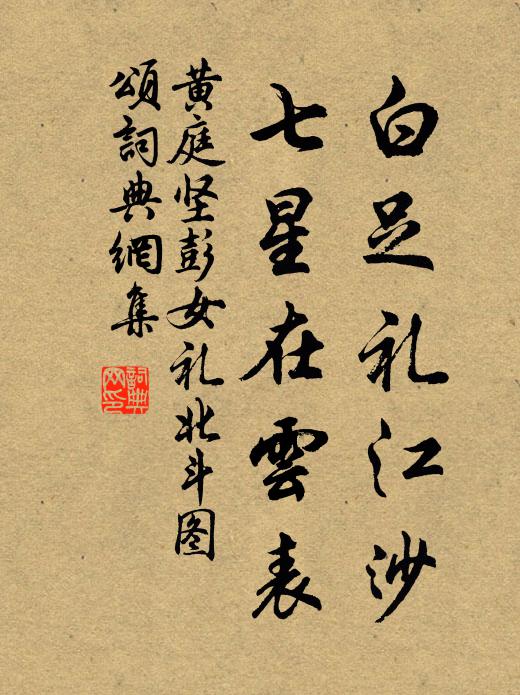 白足礼江沙
七星在雲表
黄庭坚彭女礼北斗图
頌詞典網集
詞典
网印